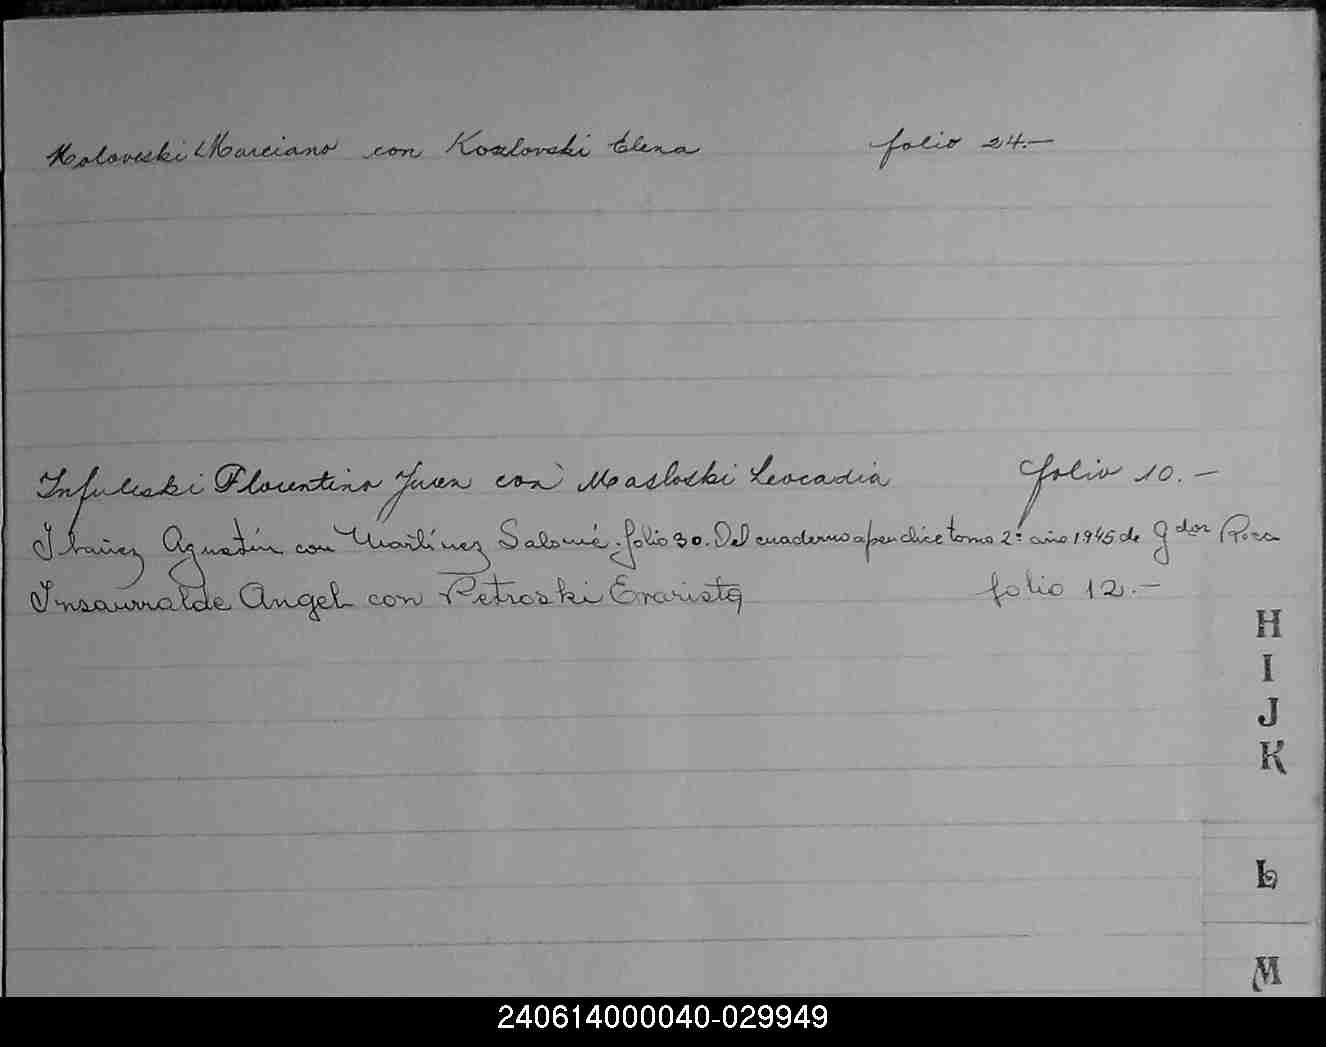 Holoveski Marciano con Kozlovski Elena folio 24.-
Infuleski Florentino Juan con Masloski Leocadia folio 10.-
Ibañez Agustín con Martínez Salomé folio 30. Del cuaderno apendice tomo 2º año 1945 de Gdor Roca
Insaurralde Angel con Petroski Evarista folio 12.-
H
I
J
K
L
M
240614000040-029949